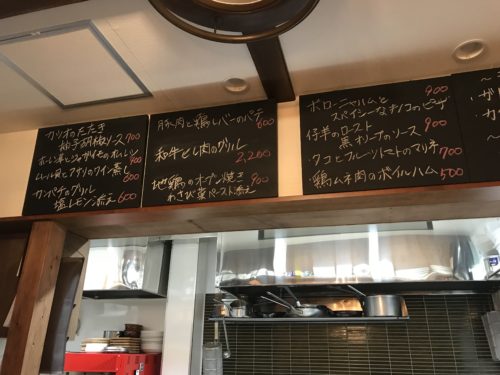 カツオのたたき
柚子胡椒ソース 700
ホーレン草とジャガイモのオムレツ 900
ムール貝とアサリのワイン蒸し 800
カンパチのグリル
塩レモン添え 600
豚肉と鶏レバーのパテ
600
和牛もも肉のグリル
2,200
地鶏のオーブン焼き 900
わさび菜ペースト添え
ボローニャハムと 900
スパイシーなキノコのピザ
仔羊のロースト 900
黒オリーブのソース
タコとフルーツトマトのマリネ 700
鶏ムネ肉のボイルハム 500